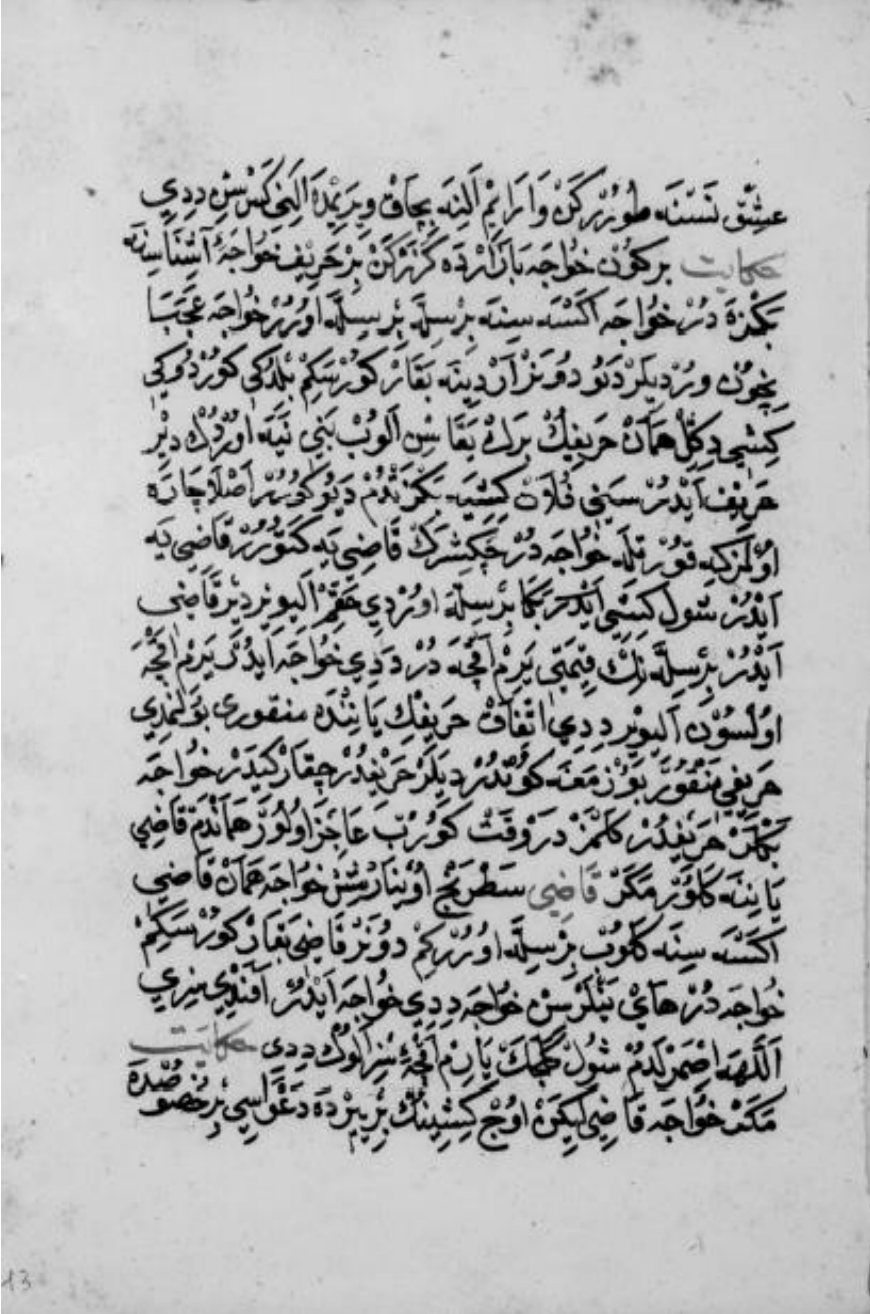 عِشْق نَسْنَه طُورُرْكَنْ وَارَايِمْ اَلِنَه بِچَاقْ وِيرَيِمْدَه اَلِنِي كَسْسُنْ دِدِي
حكايت بركُونْ خُواجَه بَازَارْدَه كَزَرْكَنْ بِرْ حَرِيفْ خُواجَه‌ٔ آشِنَاسِنَه
بَكْزَدُرْ خُواجَه اَكْسَه سِينَه بِرْسِلَّه بِرْسِلَّه اوُرُرْ خُواجَه عَجَبَا
نِچُونْ ورُرْدِيلَرْ دَيُو دُونَرْ اَرْدِينَه بَقَارْ كُورُرْسَكِمْ بِلْدُكِي كُورْدُوكِي
كِشِي دِكِلْ هَمَانْ حَرِيفِكْ بَرْكْ يَقَاسِنْ اَلُوبْ بَنِي نَيَه اوُرْدُكْ دِيْر
حَرِيفْ اَيْدُرْ سَنِي فُلَانْ كِشِيَه بَكْزَتْدُمْ دَيُو كُورُرْ اَصْلَا چَارَه
اوُلْمَزْكِه قُورْتِلَه خُواجَه دُرْ چَكِشَرَكْ قَاضِي يَه كَتُورُرْ قَاضِي يَه
اَيْدُرْ شُولْ كِشِي بَكَا بِرْسِلَّه اوُرْدِي حَقِّمْ اَلِيوِيرْ دِيْر قَاضِي
اَيْدُرْ بِرْسِلَّه نِكْ قِيمَتِي يَرِمْ اَقْچَه دُرْ دَدِي خُواجَه اَيْدُرْ يَرِمْ اَقْچَه
اوُلْسُونْ اَلِيوِيرْ دِدِي اِتِّفَاقْ حَرِيفِكْ يَانِنْدَه منقورى بولنمدي
حَرِيفِي مَنْقُورْ بوُزْمَغَه كُونْدُرْدِيلَرْ حَرِيفْدُرْ چِقَارْ كِيدَرْ خُواجَه
بَكْلَرْ حَرِيفْدُرْ كَلْمَزْ دَرْ وَقْتْ كُورُبْ عَاجِزْ اوُلُورْ هَمَانْدَمْ قَاضِي
يَانِنَه كَلُورْ مَكَرْ قَاضِي سَطْرَنْجْ اوُينَارْمِشْ خُواجَه هَمَانْ قَاضِي
اَكْسَه سِنَه كَلُوبْ بِرْسِلَّه اوُرُرْكِمْ دُونَرْ قَاضِي بَقَارْ كُورُرْسَكِمْ
خُواجَه دُرْ هَايْ نَيْلَرْسِنْ خُواجَه دِدِي خُواجَه اَيْدُرْ اَفَنْدِي سِزِي
اَللَّهَه اِصْمَرْلَدُمْ شُولْ كَلَجَكْ يَارِمْ اَقْچَه‌ٔ سِزْ اَلُوكْ دِدِى حكايت
مَكَرْ خُواجَه قَاضِي ايكِنْ اوُچْ كِشِينِكْ بِرْبِرْدَه دَعْوَاسِي بِرْ خُصُوصْدَه
13